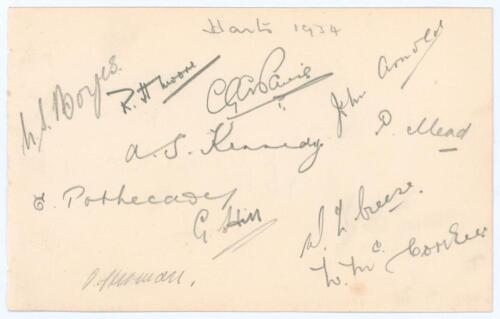 Hants 1934
G.S. Boyes.
R. H Moore
C G A Paris
John Arnold
A. S. Kennedy.
P. Mead
E. Pothecary
G. Hill
W L Creese.
N. Mc Corkell
O. Herman.